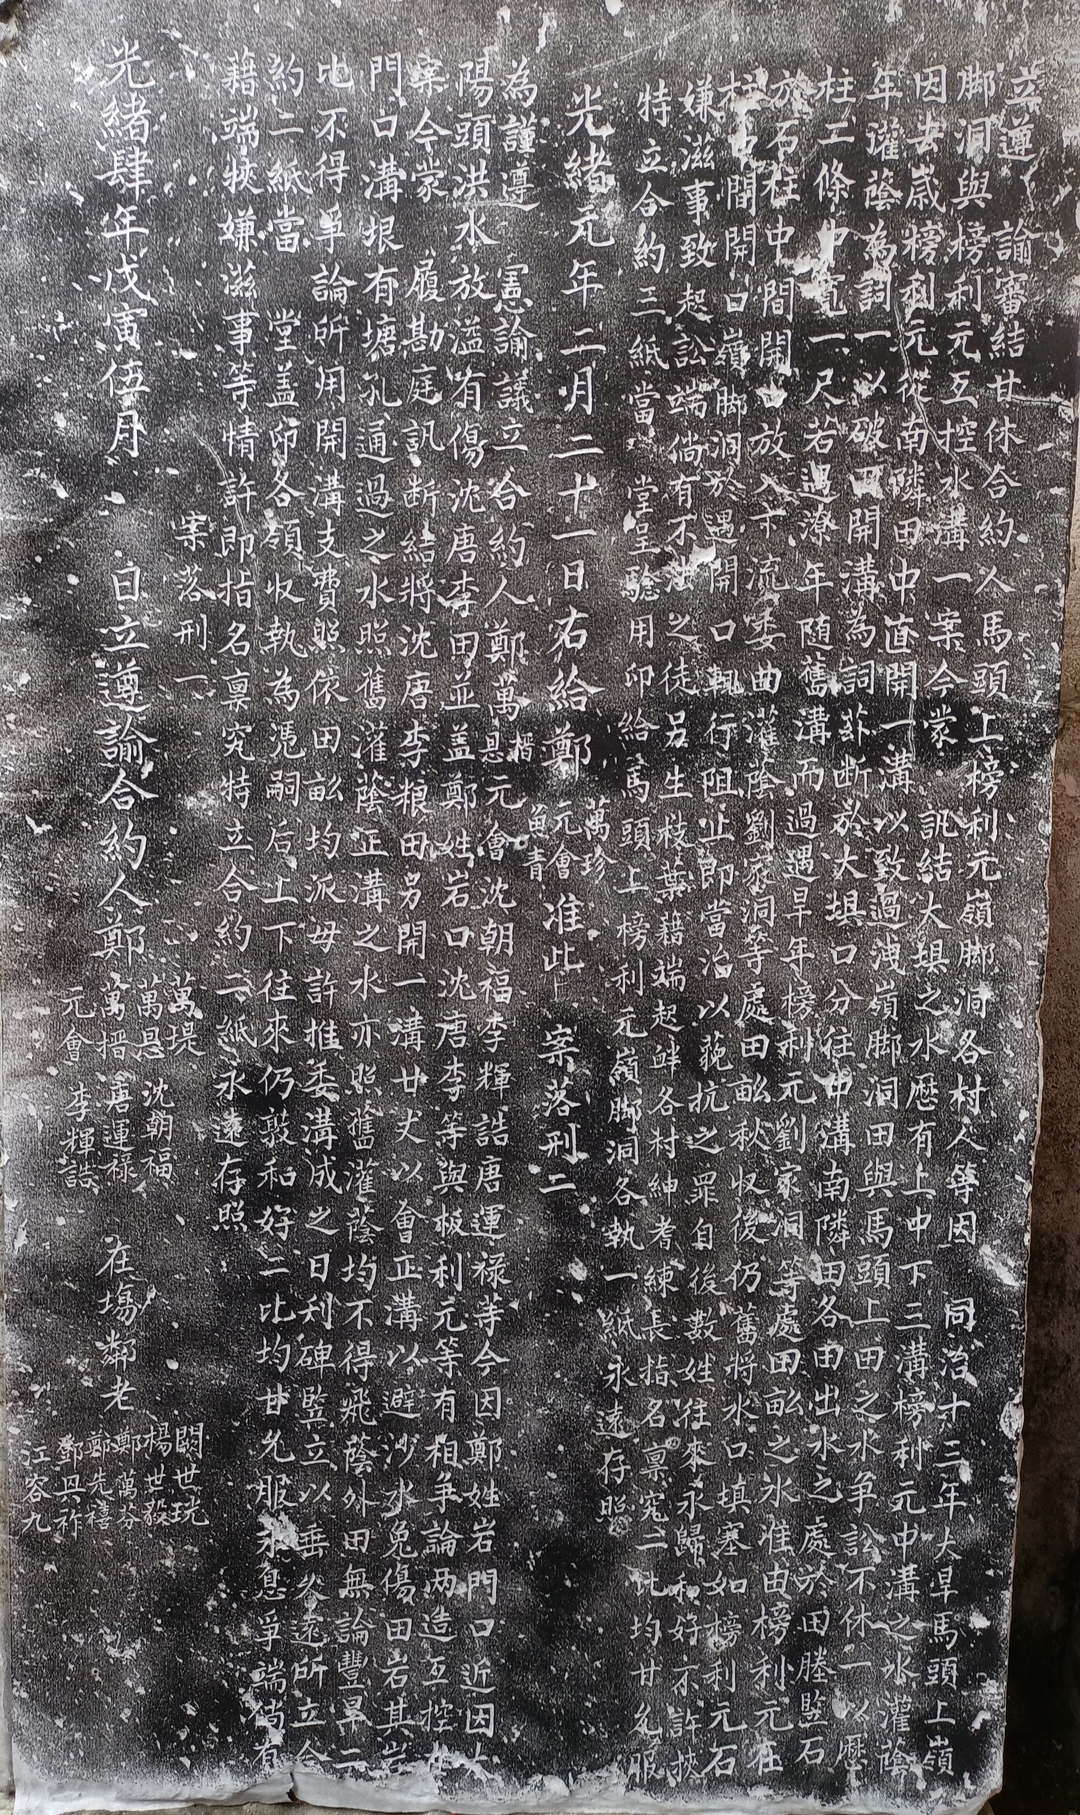 立遵　諭審結甘休合約人馬頭上榜利元嶺脚洞各村人等因　同治十三年大旱馬頭上嶺
脚洞與榜利元互控水溝一案今蒙　訊結大垻之水歷有上中下三溝榜利元中溝之水灌蔭
因去歲榜利元從南隣田中直開一溝以致過洩嶺脚洞田與馬頭上田之水爭訟不休一以歷
年灌蔭為詞一以破田開溝為詞訃断於大垻口分往中溝南隣田各由出水之處於田塍監石
柱二條中寬一尺若過潦年随舊溝而過遇旱年榜利元劉家洞等處田畝之水准由榜利元在
石柱中間開口放入下流委曲灌陰劉家洞等處田畝秋收後仍舊將水口填塞如榜利元石
柱中間開口嶺脚洞於遇開口輒行阻止即當治以藐抗之罪自後數姓往來永歸和好不許挾
嫌滋事致起訟端倘有不法之徒另生枝葉藉端起衅各村紳耆練長指名禀究二比均甘允服
特立合約三紙當　堂呈驗用印給馬頭上榜利元嶺脚洞各執一紙永遠存照
光緒元年二月二十一日右給鄭萬珍元會苗青准此　案落刑二
為謹遵　憲諭議立合約人鄭萬搢恳元會沈朝福李輝誥唐運禄等今因鄭姓岩門口近因大
陽頭洪水放溢有傷沈唐李田並盖鄭姓岩口沈唐李等與板利元等有相争論两造互控在
案今蒙　履勘庭訊断結將沈唐李粮田另開一溝廿丈以會正溝以避沙水免傷田岩其岩
門口溝垠有塘孔通過之水照舊灌蔭正溝之水亦照舊灌蔭均不得飛蔭外田無論豐旱二
比不得爭論所用開溝支費照依田畝均派毋許推委溝成之日利碑監立以垂久遠所立合
約二紙當　堂盖印各領收執為憑嗣后上下往來仍敦和好二比均甘允服永息爭端倘有
藉端挾嫌滋事等情許即指名禀究特立合約二紙永遠存照
案落刑一
光緒肆年戊寅伍月　日立遵諭合約人鄭萬堤萬恳萬搢元會　沈朝福唐運禄李輝誥　在塲鄰老　闕世珖楊世毅鄭萬芬鄭先禧鄧興祚江容九